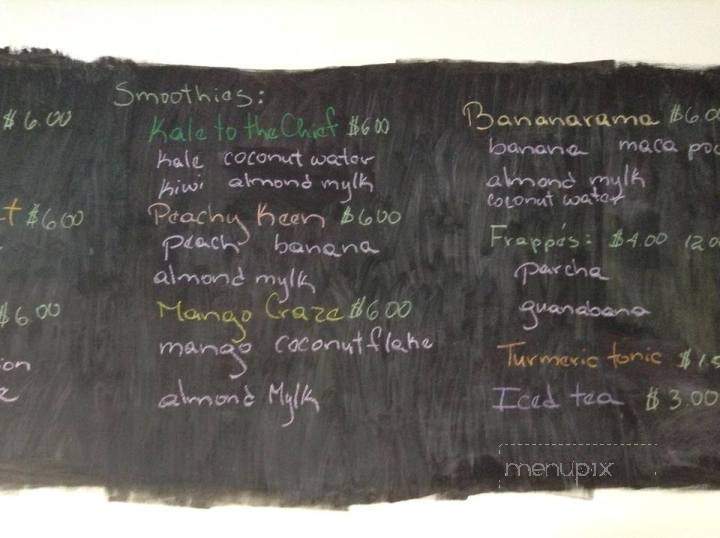 $6.00
$6.00
$6.00
Smoothies:
Kale to the Chief $6.00
kale coconut water
kiwi almond mylk
Peachy Keen $6.00
peach banana
almond mylk
Mango Craze $6.00
mango coconut flake
almond Mylk
Bananarama $6.0
banana maca
almond mylk
coconut water
Frappés: $4.00
parcha
guanabana
Turmeric tonic
Iced tea $3.00
menupix